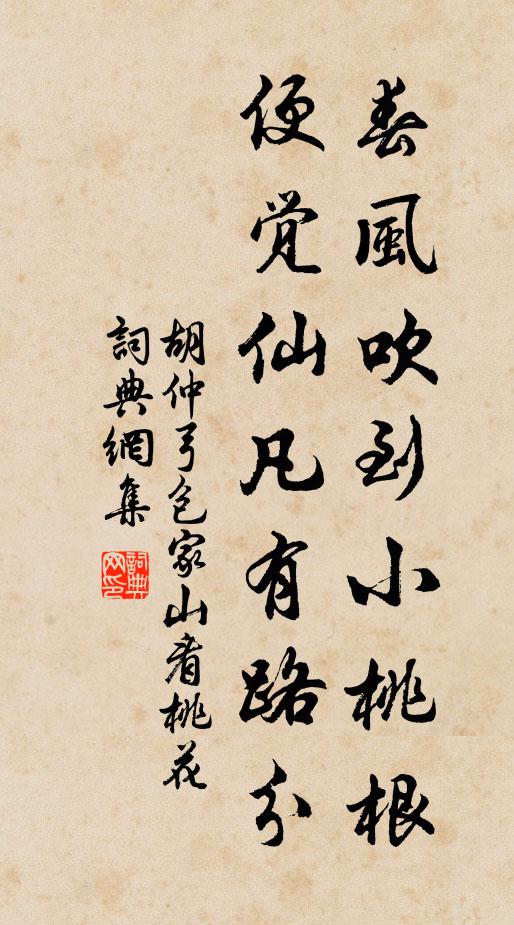 春風吹到小桃根
便覺仙凡有路分
胡仲弓包家山看桃花
詞典網集
詞典
网印